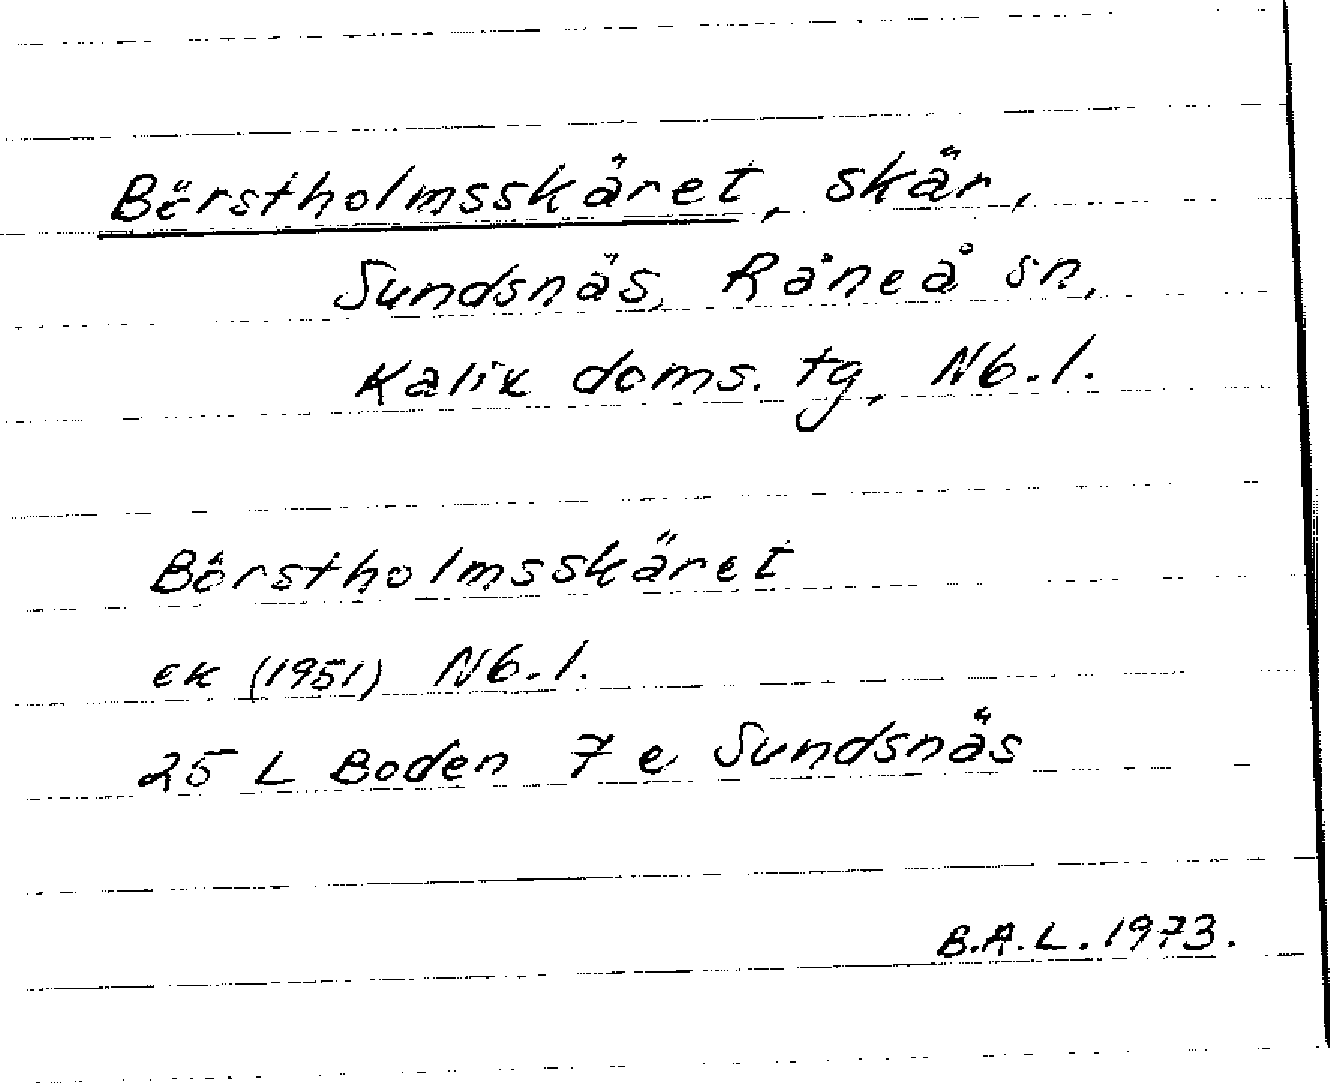 Börstholmsskäret, skär,
Sundsnäs, Råneå sn,
Kalix doms. tg, Nb. l.
Börstholmsskäret
ek (1951) Nb. l.
25 L Boden 7 e Sundsnäs
B.A.L. 1973.